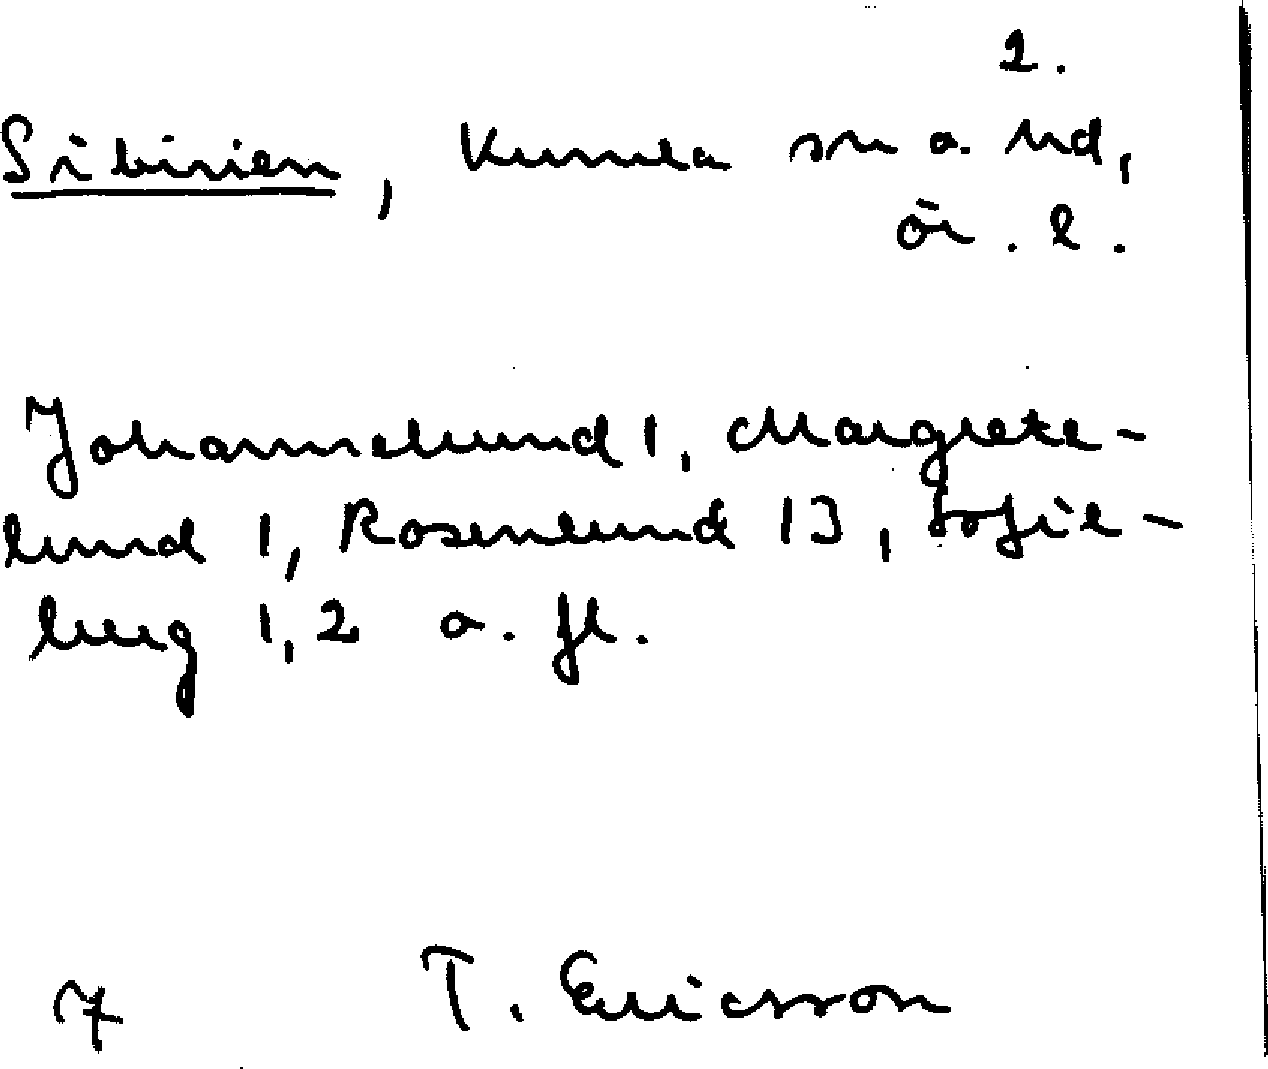 2.
Sibirien, Kumla sn o. hd,
ör. l.
Johanneslund 1, Margrete-
lund 1, Rosenlund 13, Sofie-
berg 1,2 o. fl.
7 T. Ericsson